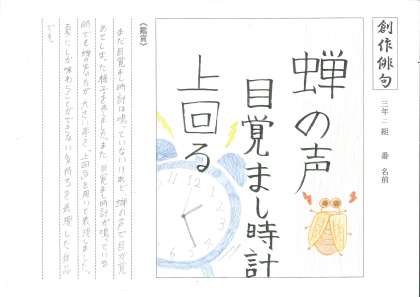 創作俳句
三年二組　番 名前
蝉の声
目覚まし時計
上回る
《鑑賞》
まだ目覚まし時計は鳴っていないけれど、蝉の声で目が覚
めてしまった様子を
まだ目覚まし時計が鳴っている
時でも蝉の
上回るを用いて表現しました。
夏にしか味わうことができない気持ちを表現した作品
です。